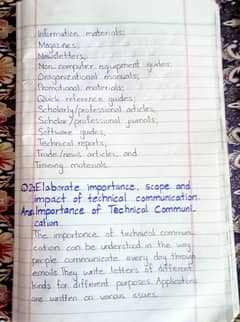 Information materials;
Magazines;
Newsletters;
Non-computer equipment guides;
Oraganizational manuals;
Promotional materials;
Quick reference guides;
Scholarly/professional articles;
Scholar/professional journals;
Software guides;
Technical reports;
Trade/news articles; and
Training materials.
Q2: Elaborate importance, scope and
impact of technical communication.
Ans. Importance of Technical Communi-
cation
The importance of technical commun-
cation can be understood in the way
people communicate every day through
emails They write letters of different
kinds for different purposes. Applications
are written on various issues.